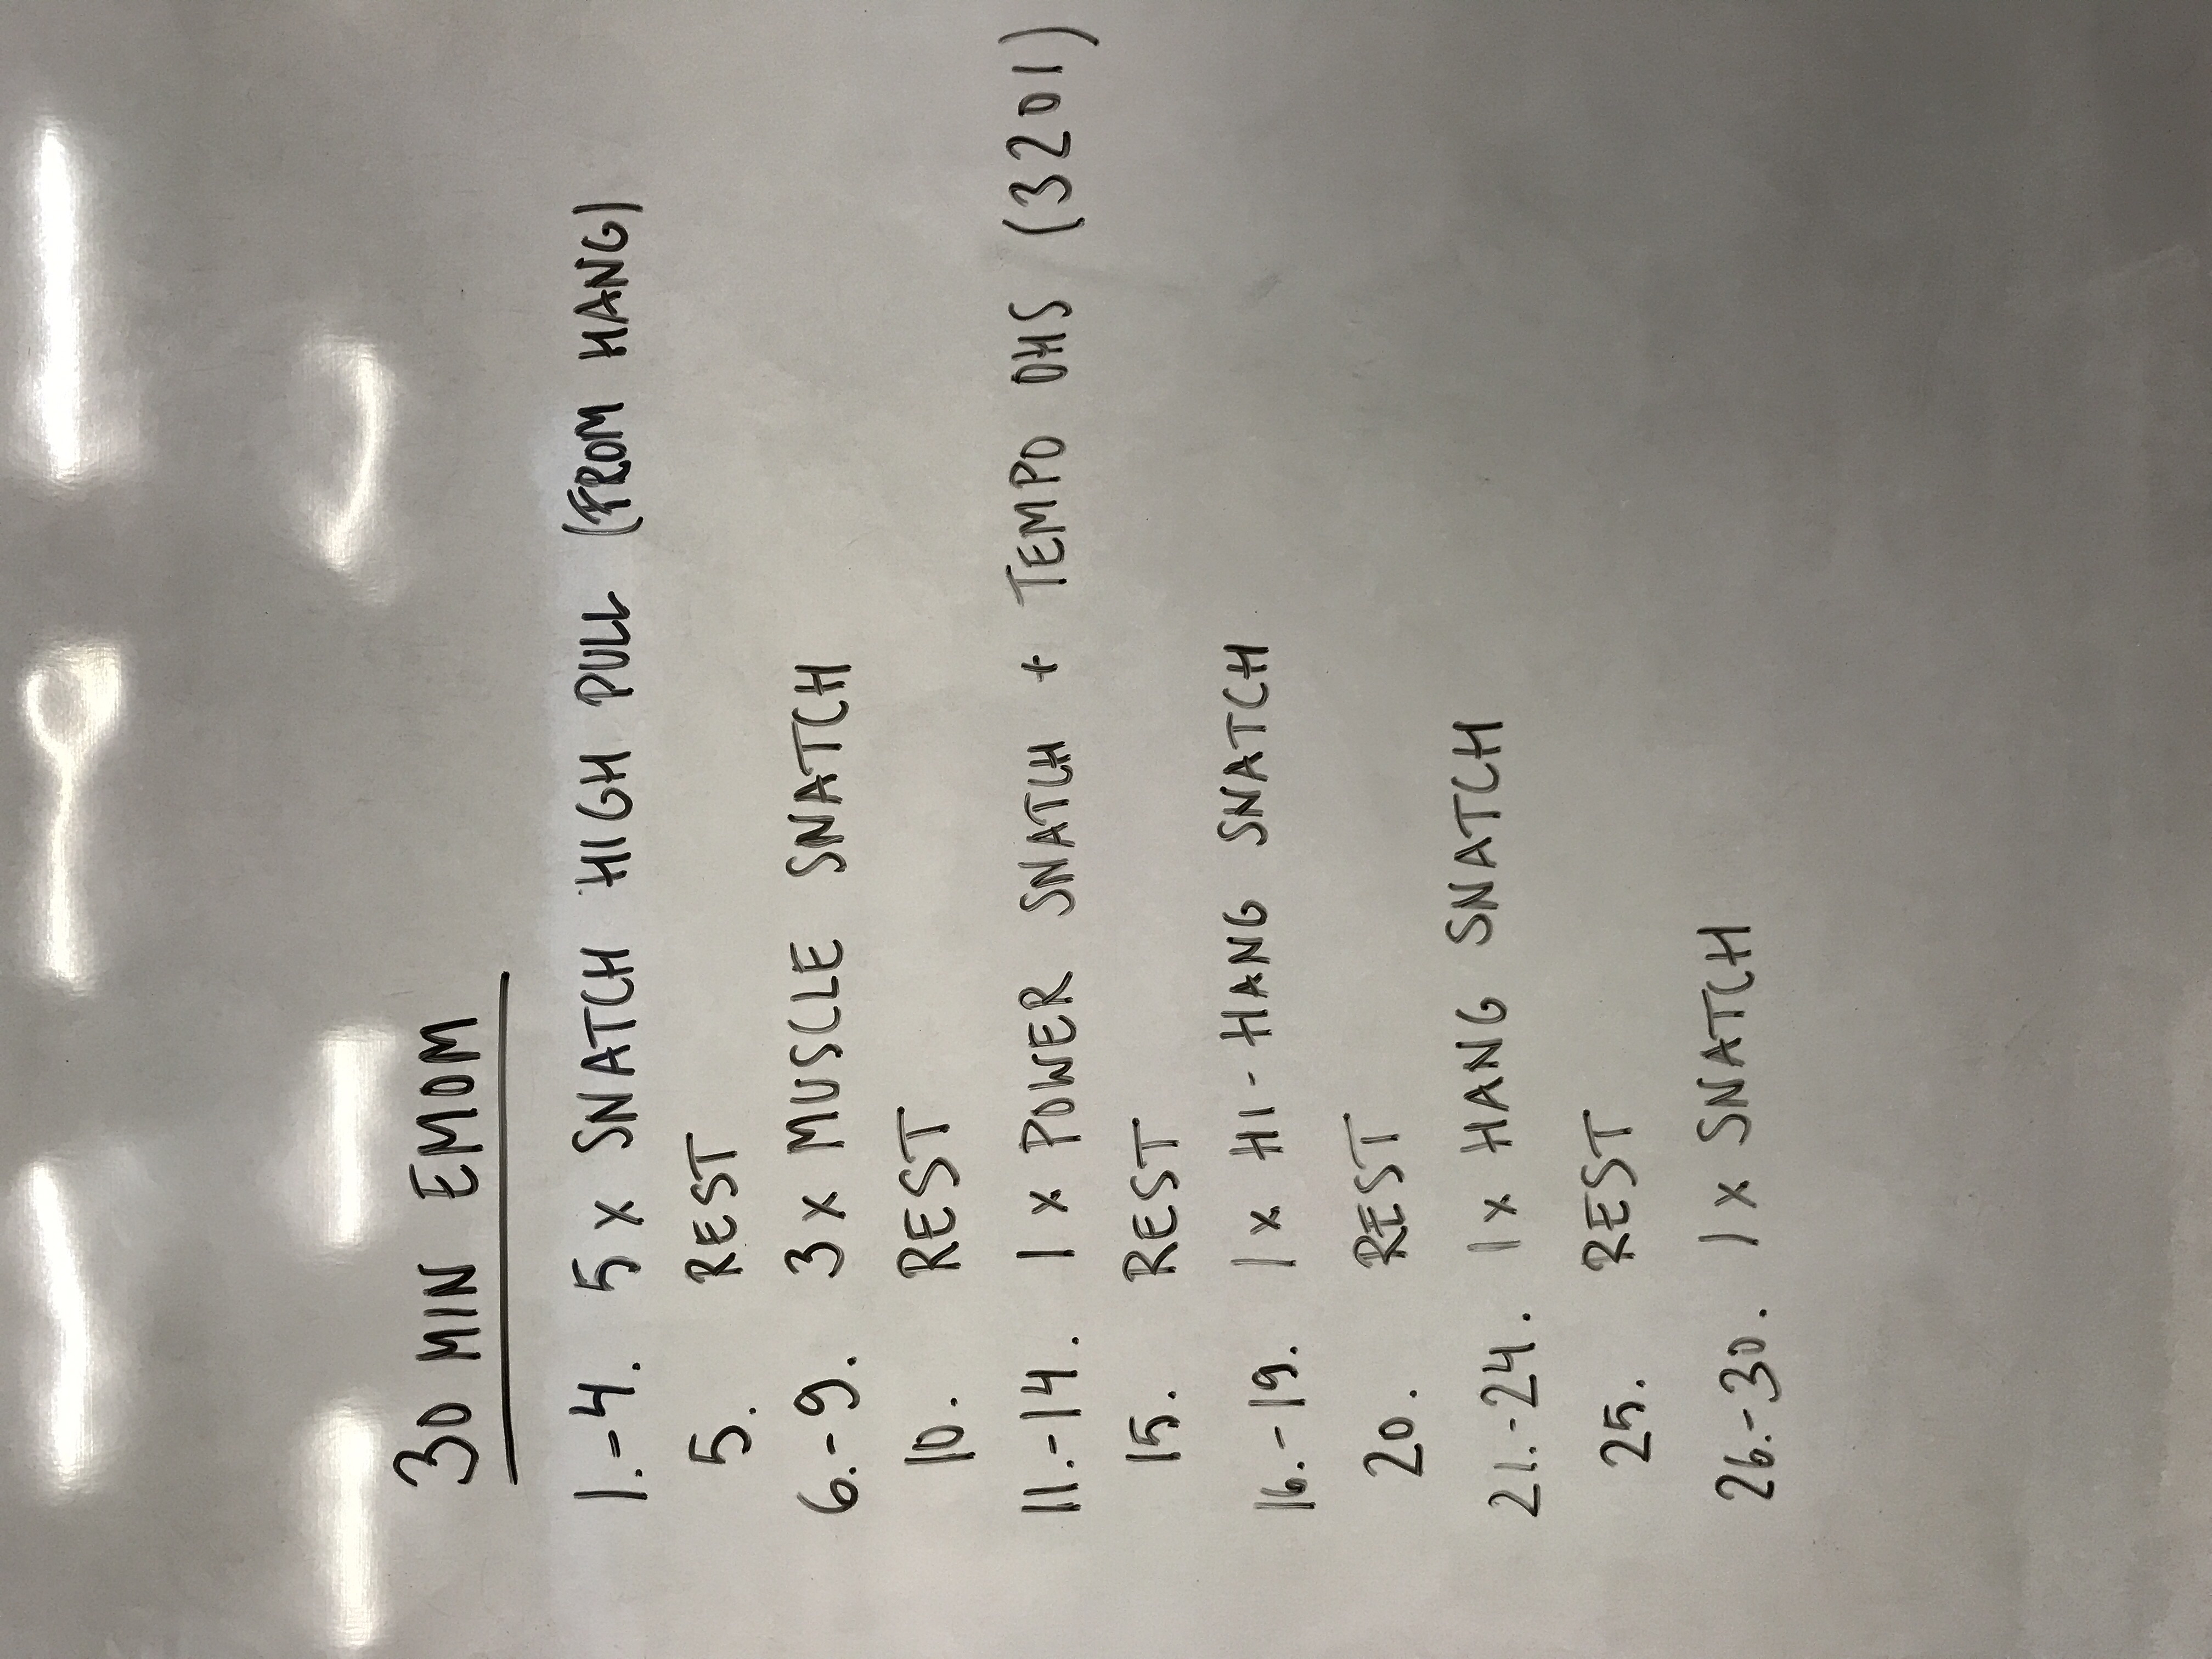 30 MIN EMOM
1.-4. 5x SNATCH HIGH PULL (FROM HANG)
5. REST
6.-9. 3x MUSCLE SNATCH
10. REST
11.-14. 1x POWER SNATCH + TEMPO OHS (3201)
15. REST
16.-19. 1x HI-HANG SNATCH
20. REST
21.-24. 1x HANG SNATCH
25. REST
26.-30. 1x SNATCH